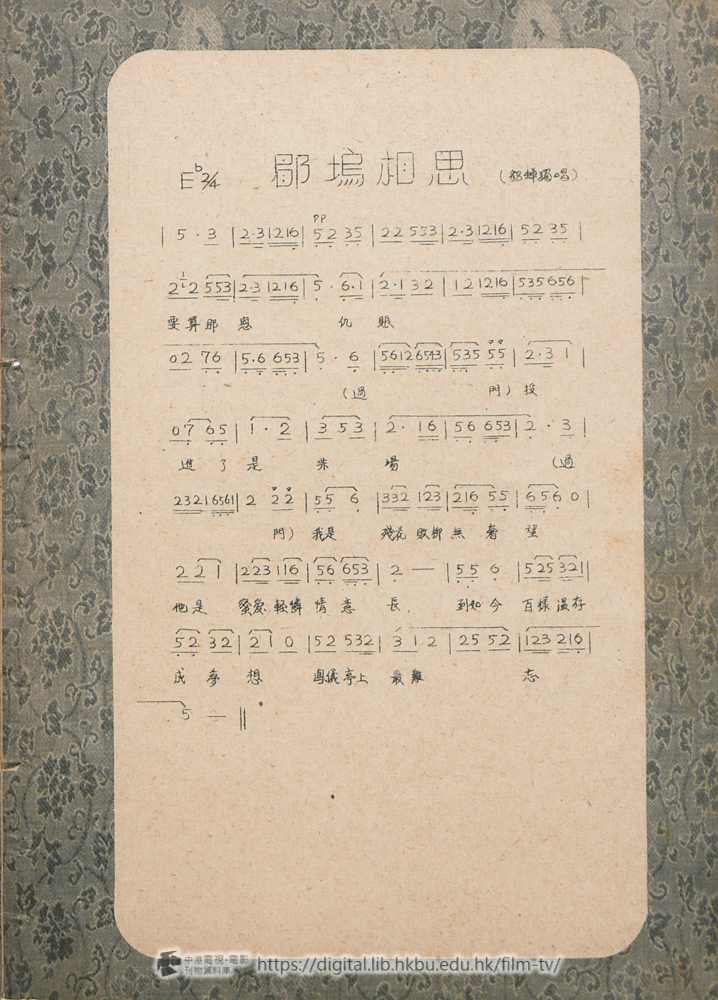 E♭ 2/4 郿塢相思 (貂蟬獨唱)
PP
| 5 · 3 | 2·3 1216 | 52 35 | 2·2 553 | 2·3 1216 | 52 35 |
要算那 恩 仇 賬
02 76 | 5·6 653 | 5 · 6 | 5612 6543 | 535 55 | 2·3 1 |
(過 門) 投
07 65 | 1 · 2 | 3 5 3 | 2· 16 | 56 653 | 2 · 3 |
進了是 非 場 (過
2321 6561 | 2 22 | 55 6 | 332 123 | 216 55 | 656 0 |
門) 我是 殘花敗柳無奢望
2 2 1 | 223 116 | 56 653 | 2 — | 55 6 | 525 321 |
他是 蜜愛輕憐情意長, 到如今 百樣溫存
52 32 | 21 0 | 52 532 | 3 1 2 | 25 52 | 123 216 |
成夢想 鳳儀亭上最難 忘
5 — ||
中港電視·電影
刊物資料庫
https://digital.lib.hkbu.edu.hk/film-tv/